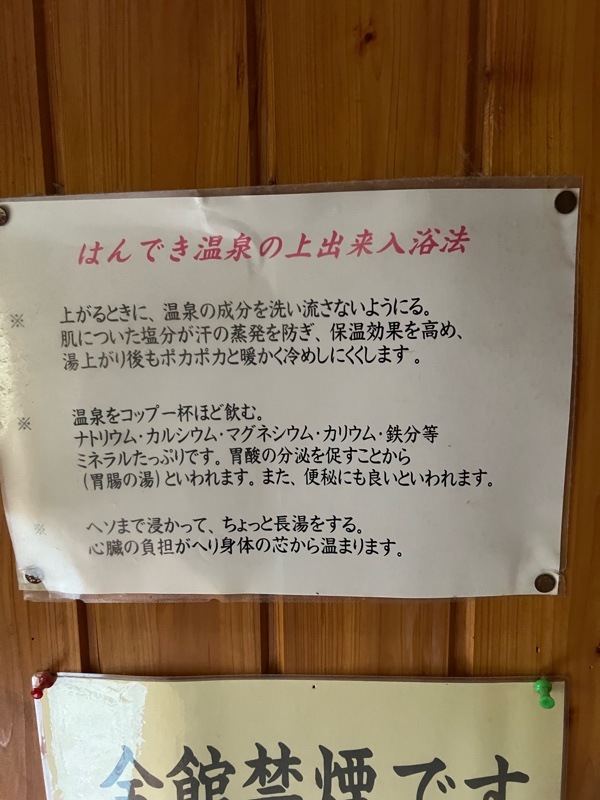 はんでき温泉の上出来入浴法
※ 上がるときに、温泉の成分を洗い流さないようにる。
肌についた塩分が汗の蒸発を防ぎ、保温効果を高め、
湯上がり後もポカポカと暖かく冷めしにくくします。
※ 温泉をコップ一杯ほど飲む。
ナトリウム・カルシウム・マグネシウム・カリウム・鉄分等
ミネラルたっぷりです。胃酸の分泌を促すことから
(胃腸の湯)といわれます。また、便秘にも良いといわれます。
※ ヘソまで浸かって、ちょっと長湯をする。
心臓の負担がへり身体の芯から温まります。
全館禁煙です